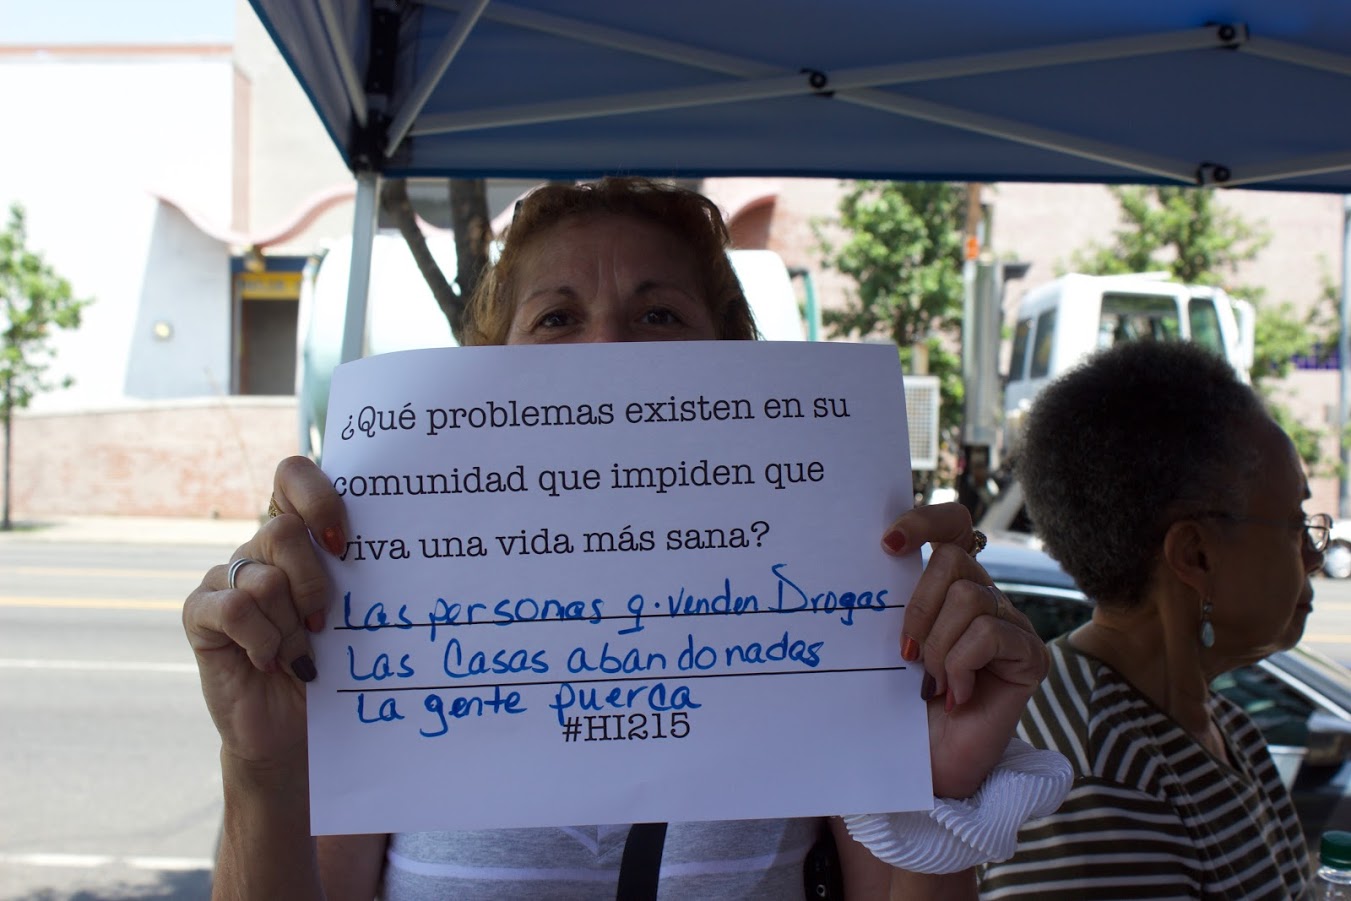 ¿Qué problemas existen en su
comunidad que impiden que
viva una vida más sana?
Las personas q. venden Drogas
Las Casas abandonadas
La gente puerca
#HI215